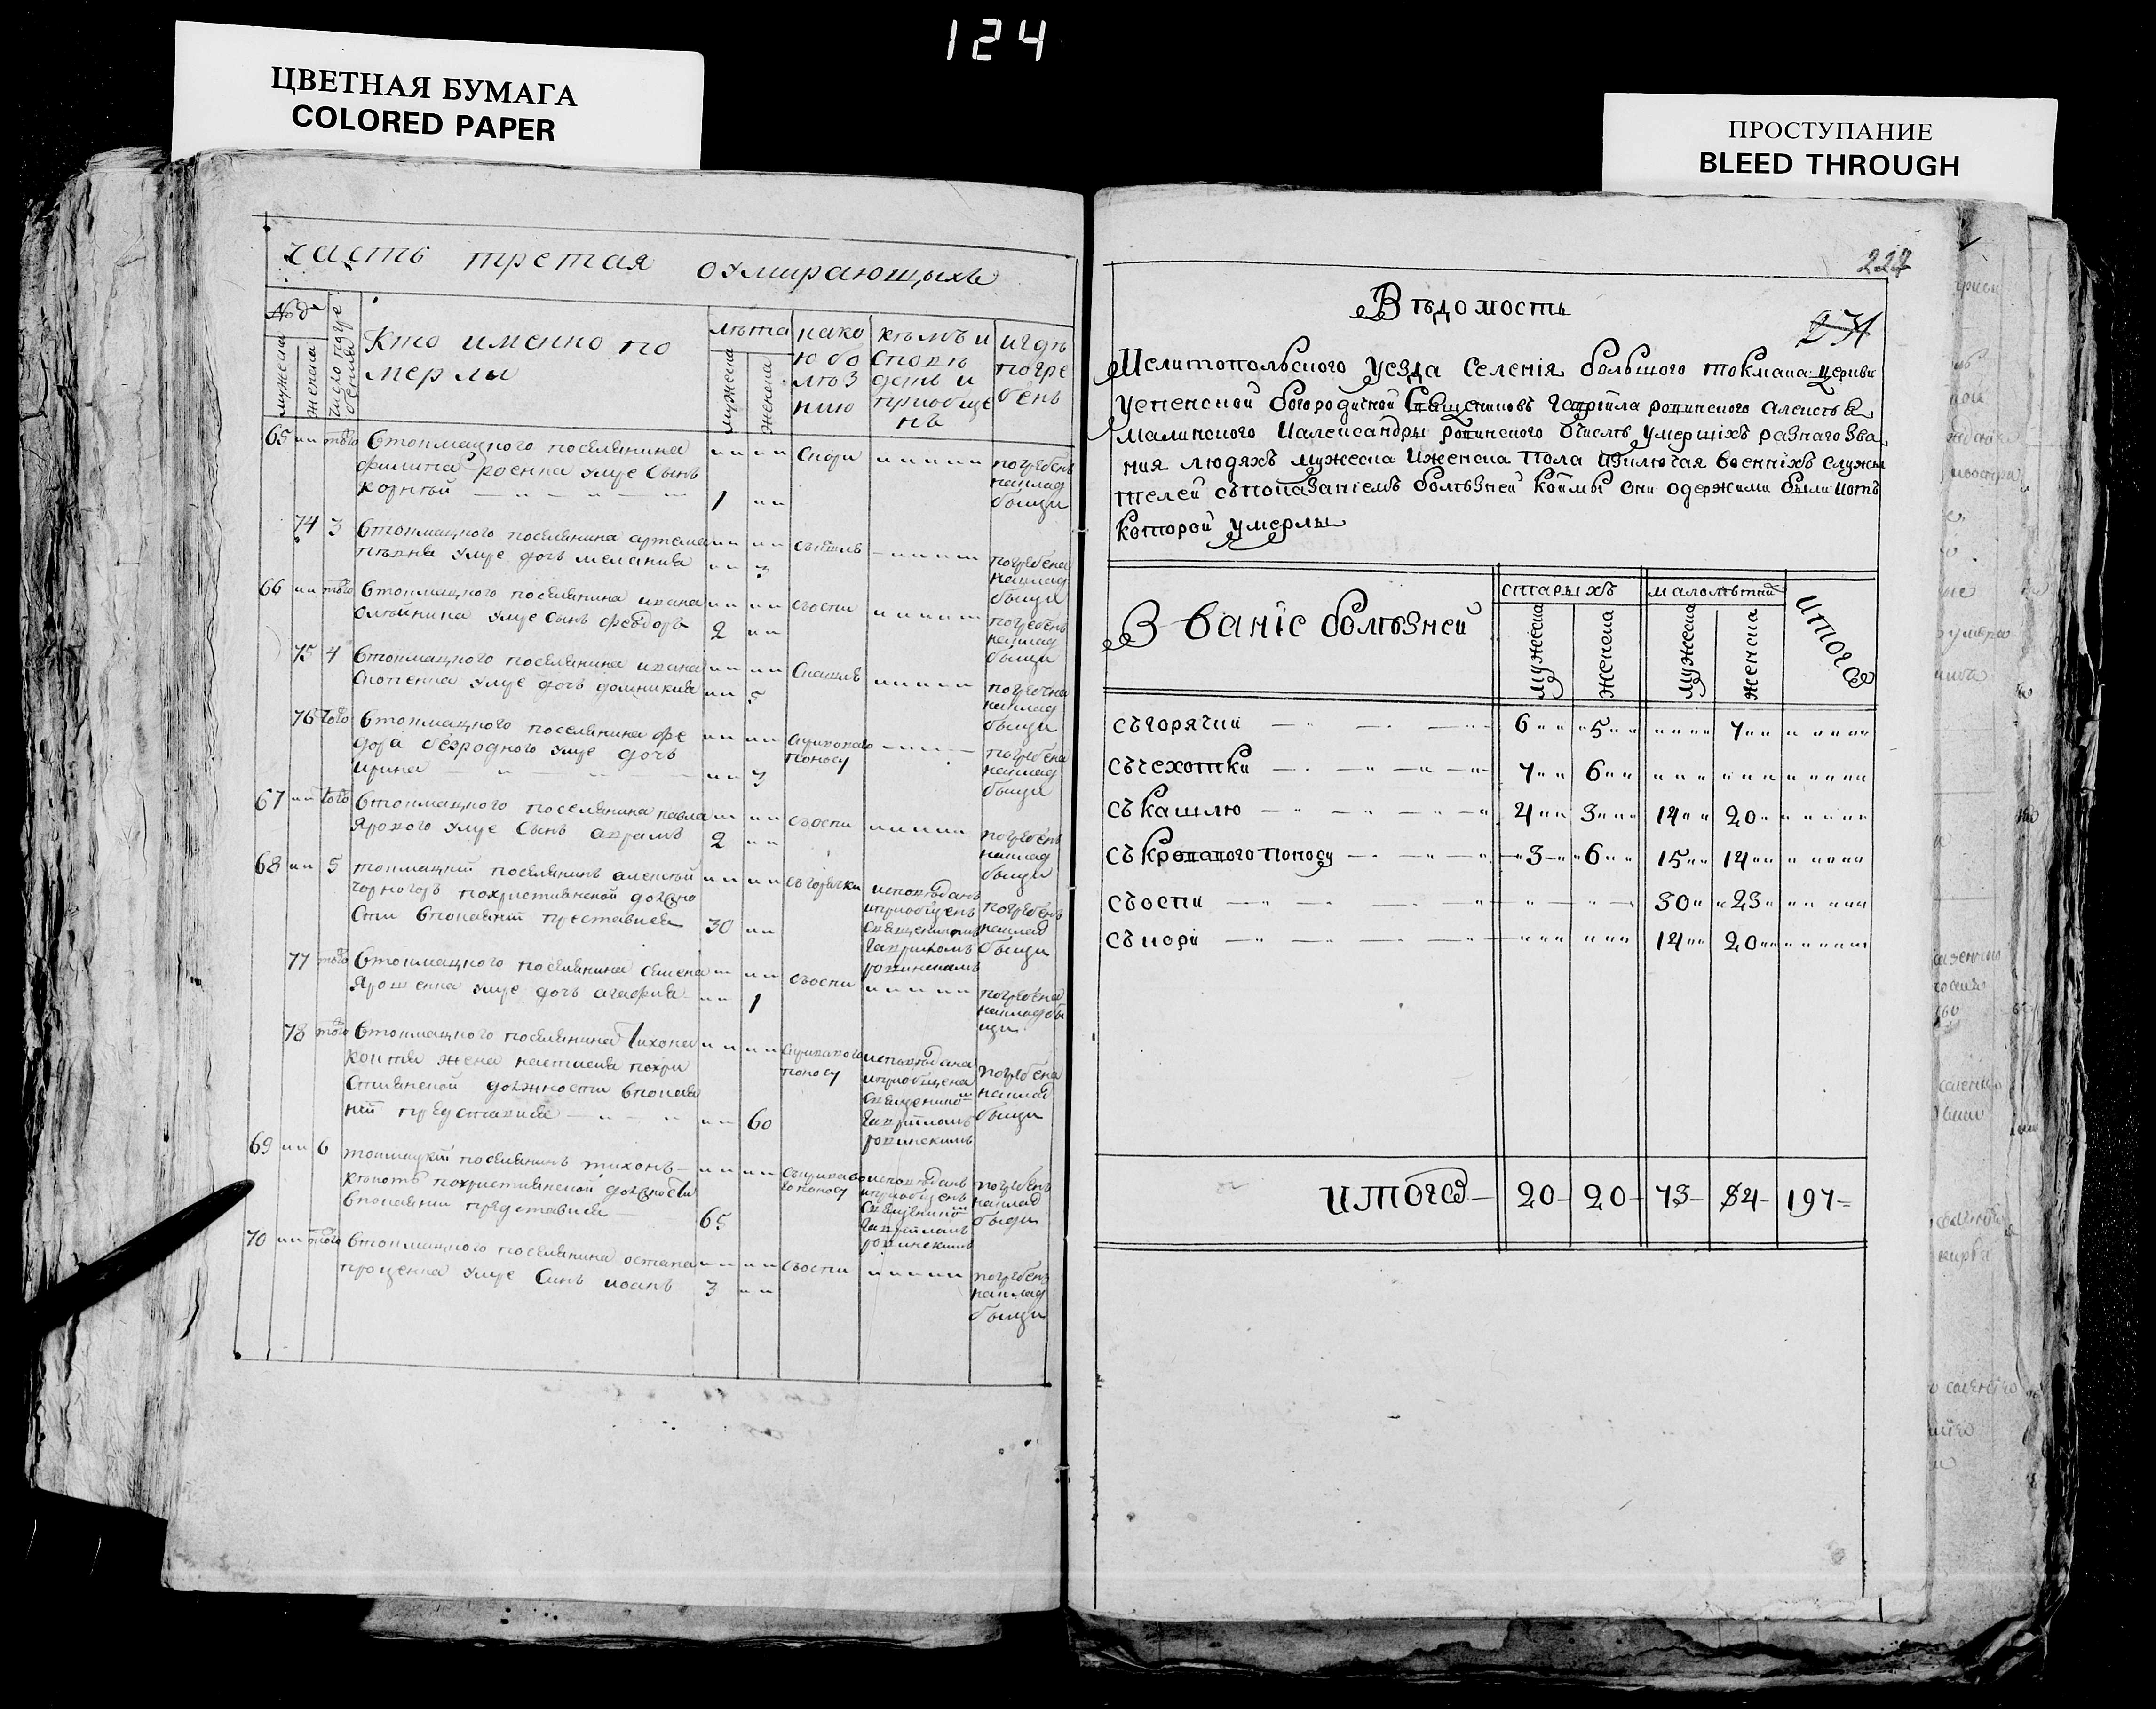 124
ЦВЕТНАЯ БУМАГА
COLORED PAPER
ПРОСТУПАНИЕ
BLEED THROUGH
часть третая оумирающыхъ
мужеска
женска
Кто именно по
мерлы
лѣта
мужеска
женска
како
ю бо
лѣз
нию
кѣмъ и
сповѣ
данъ и
приобще
нъ
игдѣ
погре
бенъ
65 того Втокмацкого поселянина
филипа умре сынъ
1
Скори
погребенъ
наклад
бищи
74 3 Втокмацкого поселянина артема
умре дочъ мелания
3
погребена
наклад
бищи
66 того Втокмацкого поселянина ивана
умре сынъ феодоръ
2
съоспи
погребенъ
наклад
бищи
75 4 Втокмацкого поселянина ивана
умре дочъ домникия
5
Скашлѣ
погребена
наклад
бищи
76 того Втокмацкого поселянина фе
дора безродного умре дочъ
ирина
3
Скривавого
поносу
погребена
наклад
бищи
67 того Втокмацкого поселянина павла
Ярового умре сынъ аврамъ
2
съоспи
погребенъ
наклад
бищи
68 5 токмацкий поселянинъ алексѣй
похристиянской должно
сти впокаянии преставися
30
съгорячки
исповѣданъ
иприобщенъ
Священикомъ
Гавриломъ
ровинскимъ
погребенъ
наклад
бищи
77 того Втокмацкого поселянина семена
Ярошенка умре дочъ агафия
1
съоспи
погребена
накладби
щи
78 того Втокмацкого поселянина Тихона
жена настасия похри
стиянской должности впокая
нии представися
60
Скривавого
поносу
исповѣдана
иприобщена
Священико
Гавриломъ
ровинскимъ
погребена
наклад
бищи
69 6 токмацкий поселянинъ тихонъ
похристиянской должности
впокаянии представися
65
Скриваво
го поносу
исповѣданъ
иприобщенъ
Священико
Гавриломъ
ровинскимъ
погребенъ
наклад
бищи
70 того Втокмацкого поселянина остапа
проценка умре синъ иоанъ
3
съоспи
погребенъ
наклад
бищи
227
231
Вѣдомость
Мелитопольского уезда Селенія большого токмака церкви
успенской богородичной Священиковъ Гавріила ровинского алексѣя
малинского Иалександры ровинского Очислѣ умершіхъ разнаго зва
ния людяхъ мужеска Иженска пола изключая военніхъ служи
телей съпоказаніемъ болѣзней коймы они одержими были иотъ
которой умерлы
Званіе болѣзней
старыхъ
мужеска
женска
малолѣтній
мужеска
женска
Итого
Съгорячки 6 5 7
Съчехотки 7 6
Съ кашлю 4 3 14 20
Съ кровавого поносу 3 6 15 14
Съоспи 30 23
Съкори 14 20
Итого 20 20 73 84 197